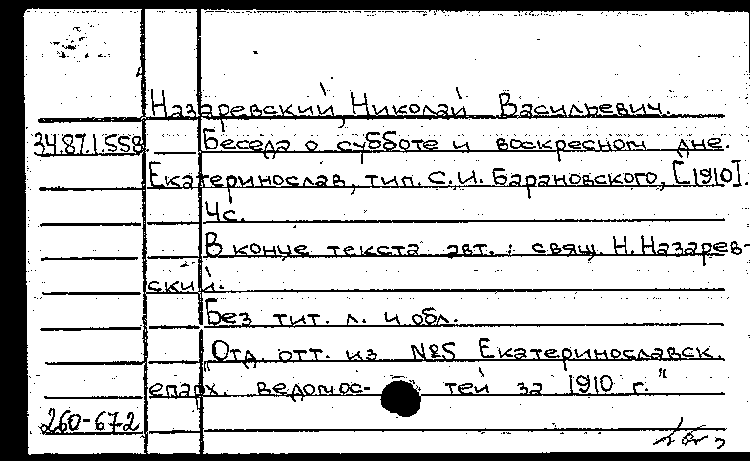 Назаревский, Николай Васильевич.
34.87.1.558 Беседа о субботе и воскресном дне.
Екатеринослав, тип. С.И. Барановского, [1910].
4с.
В конце текста авт.: свящ. Н. Назарев-
ский.
Без тит. л. и обл.
"Отд. отт. из №5 Екатеринославск.
епарх. ведомос- тей за 1910 г."
260-672